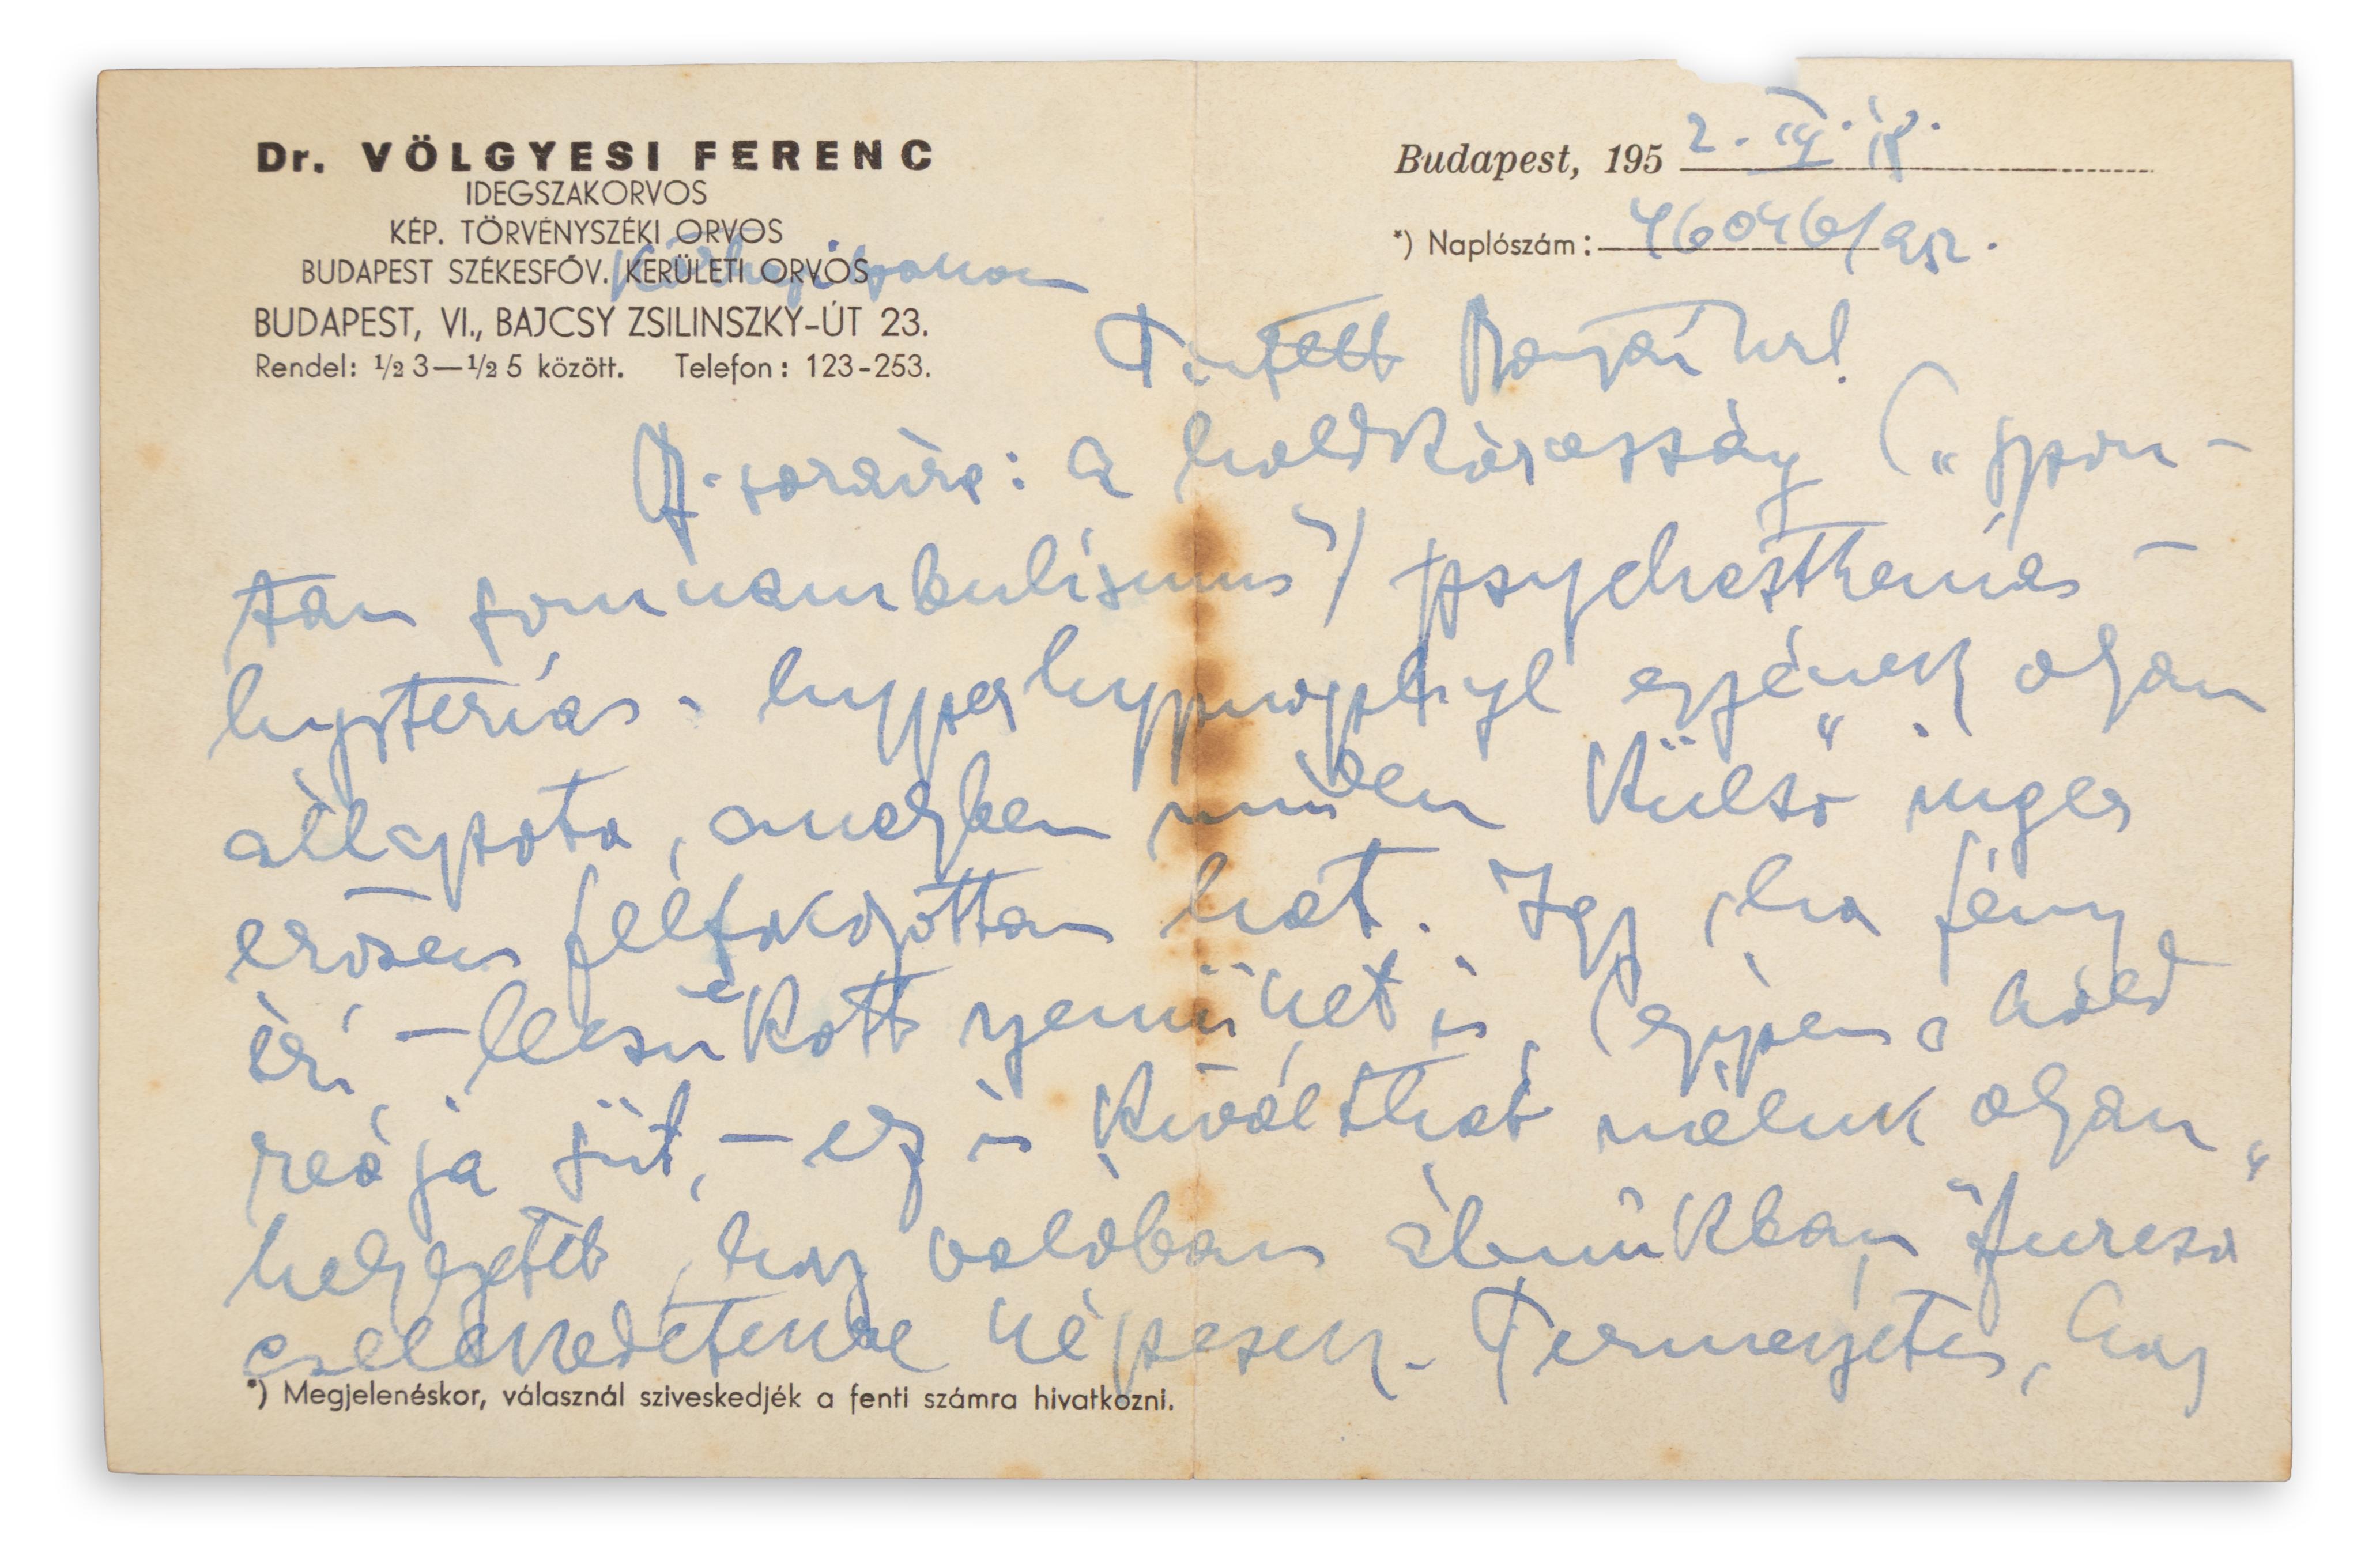 Dr. VÖLGYESI FERENC
IDEGSZAKORVOS
KÉP. TÖRVÉNYSZÉKI ORVOS
BUDAPEST SZÉKESFŐV. KERÜLETI ORVOS
BUDAPEST, VI., BAJCSY ZSILINSZKY-ÚT 23.
Rendel: ½ 3—½ 5 között. Telefon: 123-253.
Budapest, 1952.
*) Naplószám: 46046/952.
Kartársam!
soraira: a holdkórosság („spon-
tán somnambulismus") psychastheniás-
hysteriás-hyperhypnophyl egyének olyan
állapota, amelyben minden „külső" inger
erősen felfokozottan hat. Így, ha fény
éri, – lecsukott szemüket is, (éppen a hold
reája süt, – ez is kiválthat náluk olyan
helyzetet, hogy valóban álmukban, "furcsa"
cselekedetekre képesek. Természetes, hogy
*) Megjelenéskor, válasznál sziveskedjék a fenti számra hivatkozni.